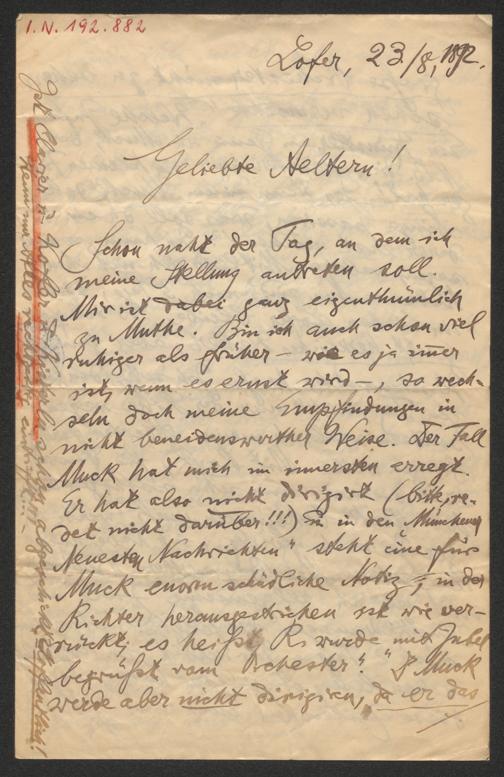 I. N. 192.882
Lofer, 23./8. 1892.
Geliebte Aeltern!
Schon naht der Tag, an dem ich
meine Stellung antreten soll.
Mir ist dabei ganz eigenthümlich
zu Muthe. Bin ich auch schon viel
ruhiger als früher – wie es ja immer
ist, wenn es ernst wird –, so wech-
seln doch meine Empfindungen in
nicht beneidenswerther Weise. Der Fall
Muck hat mich im innersten erregt.
Er hat also nicht dirigirt (bitte, re-
det nicht darüber!!!) u. in den „Münchener
Neuesten Nachrichten" steht eine für
Muck enorm schädliche Notiz, in der
Richter herausgestrichen ist wie ver-
rückt; es heißt, Ri. wurde mit Jubel
begrüßt vom Orchester!" Muck
werde aber nicht dirigiren, da er das